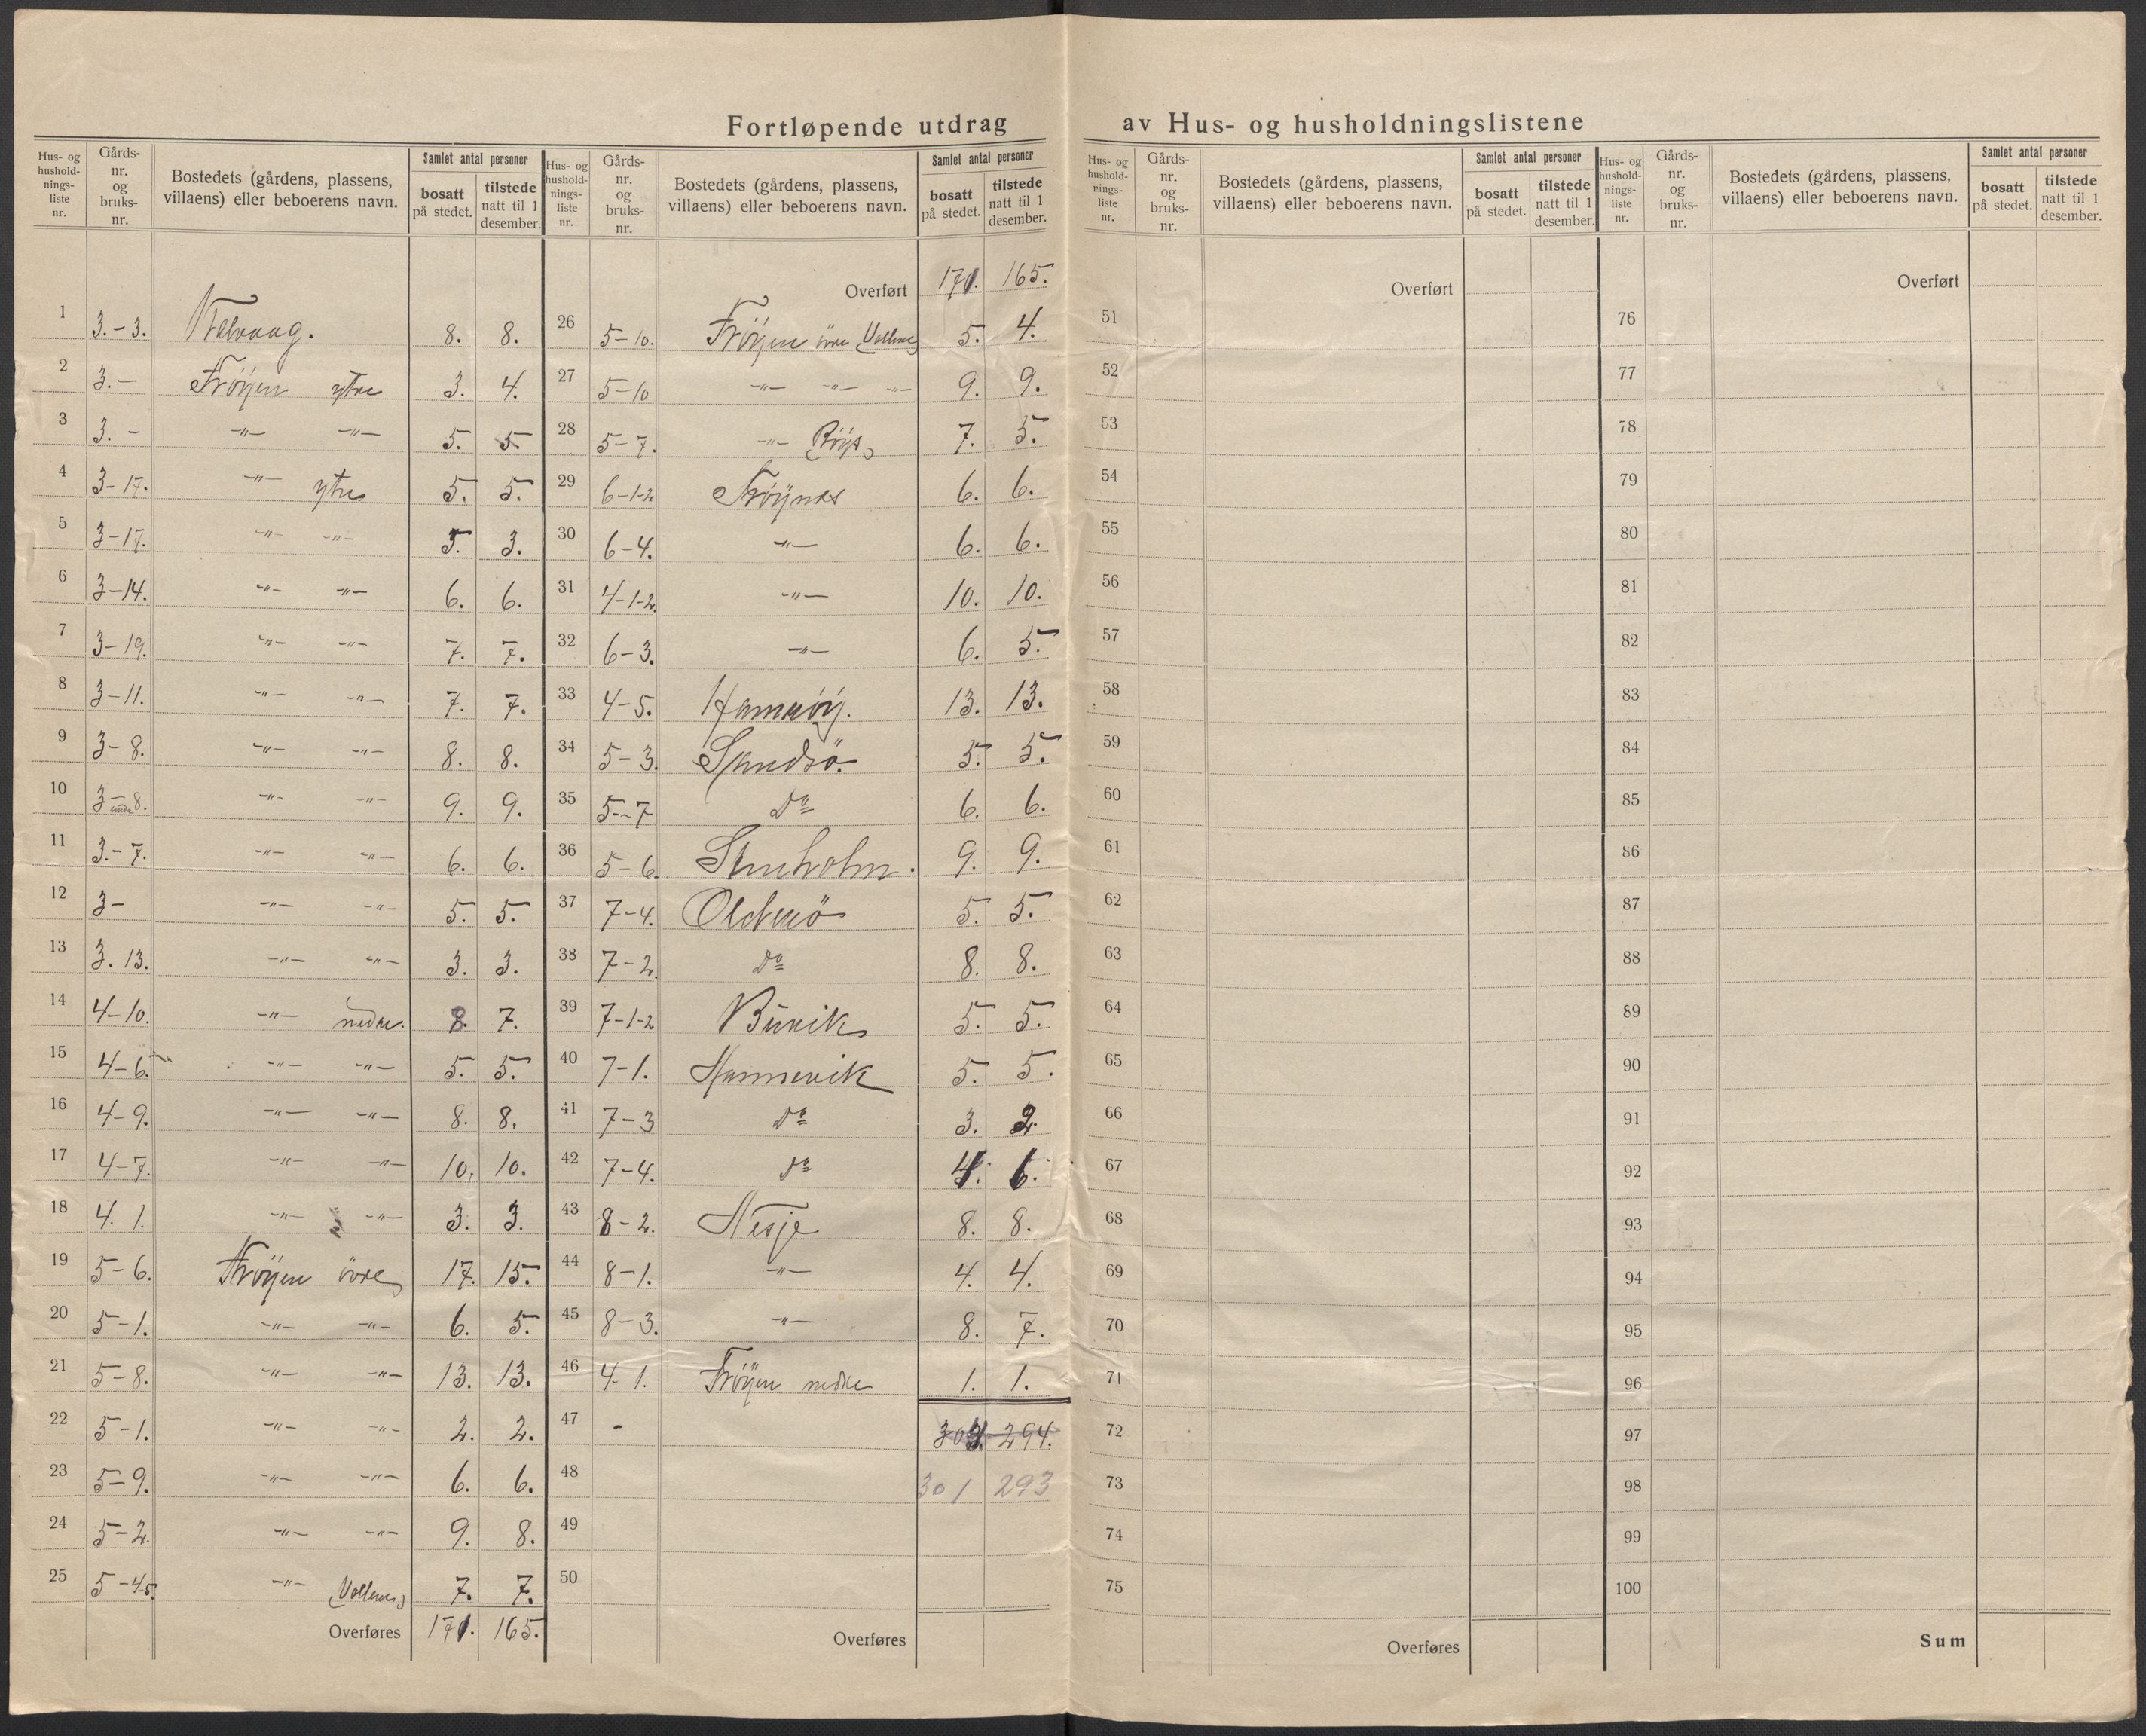 Fortløpende utdrag av Hus- og husholdningslistene
Hus- og hushold-nings-liste nr. | Gårds-nr. og bruks-nr. | Bostedets (gårdens, plassens, villaens) eller beboerens navn. | Samlet antal personer | bosatt på stedet. | tilstede natt til 1 desember.
1 3.-3. 8. 8.
2 3.- Fröyen ytre 3. 4.
3 3.- -"- -"- 5. 5.
4 3-17. -"- ytre 5. 5.
5 3-17. -"- -"- 5. 3.
6 3-14. -"- -"- 6. 6.
7 3-19. -"- -"- 7. 7.
8 3-11. -"- -"- 7. 7.
9 3-8. -"- -"- 8. 8.
10 3-8. -"- -"- 9. 9.
11 3.-7. -"- -"- 6. 6.
12 3- -"- -"- 5. 5.
13 3.13. -"- -"- 3. 3.
14 4-10. -"- nedre. 8. 7.
15 4-6. -"- -"- 5. 5.
16 4-9. -"- -"- 8. 8.
17 4-7. -"- -"- 10. 10.
18 4.1. -"- -"- 3. 3.
19 5-6. Fröyen övre 17. 15.
20 5-1. -"- -"- 6. 5.
21 5-8. -"- -"- 13. 13.
22 5-1. -"- -"- 2. 2.
23 5-9. -"- -"- 6. 6.
24 5-2. -"- -"- 9. 8.
25 5-45. -"- 7. 7.
Overføres 171. 165.
Hus- og hushold-nings-liste nr. | Gårds-nr. og bruks-nr. | Bostedets (gårdens, plassens, villaens) eller beboerens navn. | Samlet antal personer | bosatt på stedet. | tilstede natt til 1 desember.
Overført 171. 165.
26 5-10. Fröyen övre 5. 4.
27 5-10 -"- -"- -"- 9. 9.
28 5-7. -"- 7. 5.
29 6-1-2 Fröynes 6. 6.
30 6-4. -"- 6. 6.
31 4-1-2. -"- 10. 10.
32 6-3. -"- 6. 5.
33 4-5. Hamnöy. 13. 13.
34 5-3. Sandsö. 5. 5.
35 5-7 Do 6. 6.
36 5-6. 9. 9.
37 7-4. 5. 5.
38 7-2. Do 8. 8.
39 7-1-2 5. 5.
40 7-1. Hamnevik 5. 5.
41 7-3 Do 3. 2.
42 7-4. Do 4. 6.
43 8-2. Nesje 8. 8.
44 8-1. -"- 4. 4.
45 8-3. -"- 8. 7.
46 4-1. Fröyen nedre 1. 1.
47 - 294.
48 301 293
49
50
Overføres
Hus- og hushold-nings-liste nr. | Gårds-nr. og bruks-nr. | Bostedets (gårdens, plassens, villaens) eller beboerens navn. | Samlet antal personer | bosatt på stedet. | tilstede natt til 1 desember.
Overført
51
52
53
54
55
56
57
58
59
60
61
62
63
64
65
66
67
68
69
70
71
72
73
74
75
Overføres
Hus- og hushold-nings-liste nr. | Gårds-nr. og bruks-nr. | Bostedets (gårdens, plassens, villaens) eller beboerens navn. | Samlet antal personer | bosatt på stedet. | tilstede natt til 1 desember.
Overført
76
77
78
79
80
81
82
83
84
85
86
87
88
89
90
91
92
93
94
95
96
97
98
99
100
Sum